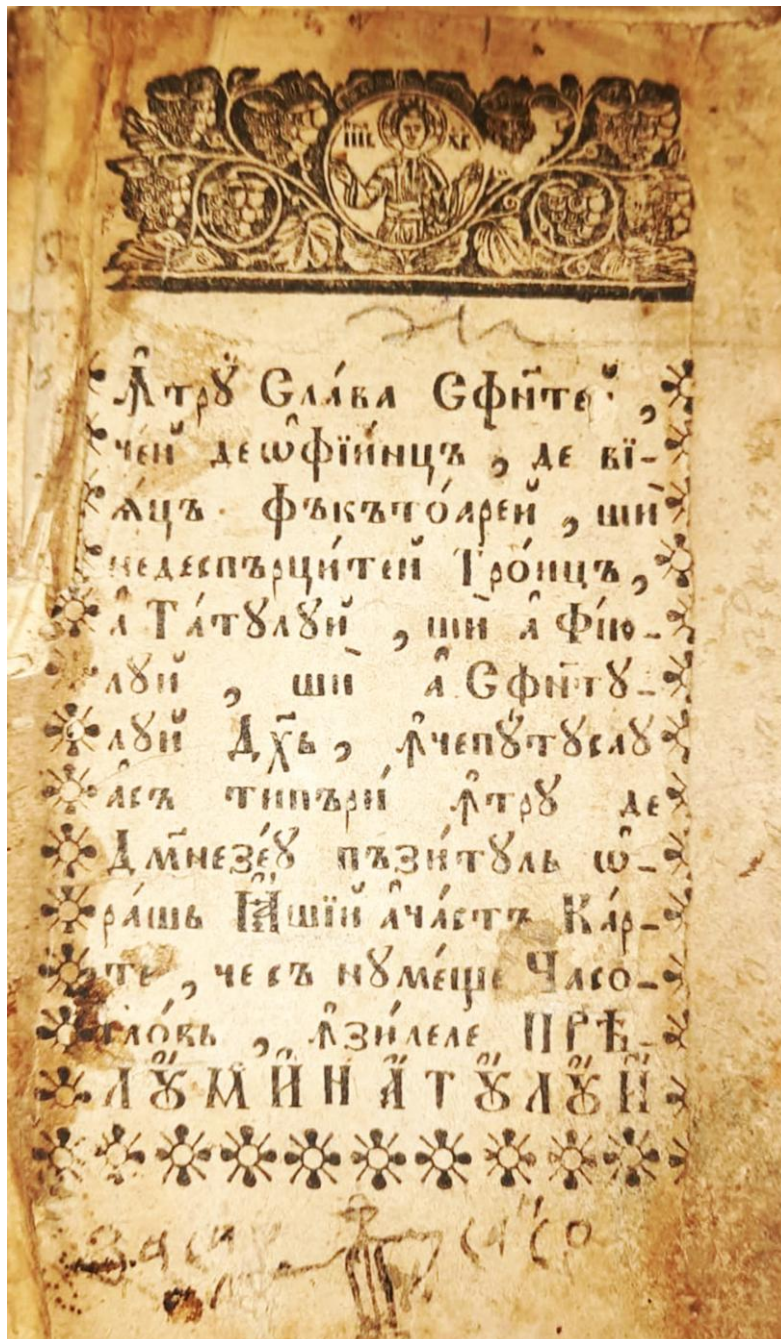 ІИС ХС
Ꙟ҆трꙋ̈ Сла́ва Сфн҃тей,
чей деѡ̑фїи́нцъ, де вї-
ѧ́цъ фъкъто́арей, шѝ
недеспърци́тей Тро́ицъ,
а̑ Та́тꙋлꙋй, шѝ а̑ Фі́ю-
лꙋй, шѝ а̑ Сфн҃тꙋ-
лꙋй Дх҃ь, ꙟ҆чепꙋ́тꙋслꙋ
а̑съ типърѝ ꙟ҆трꙋ де
Дм҃незе́ꙋ пъзи́тꙋль ѡ̑-
ра́шь Ꙗ҆́шїй а̑ча́стъ Ка́р-
те, че съ нꙋме́ще Часо-
сло́вь, ꙟ҆зи́леле ПРѢ-
ЛꙊМИНАТꙊЛꙊЙ